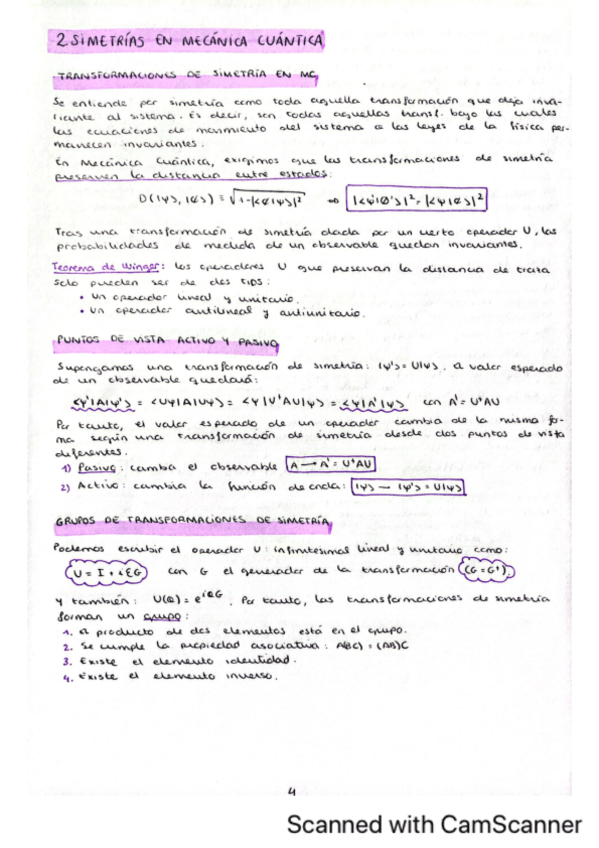 2 SIMETRÍAS EN MECÁNICA CUÁNTICA
TRANSFORMACIONES DE SIMETRÍA EN MC
Se entiende por simetría como toda aquella transformación que deja inva-
riante al sistema. Es decir, son todas aquellas transf. bajo las cuales
las ecuaciones de movimiento del sistema o las leyes de la física per-
manecen invariantes.
En Mecánica Cuántica, exigimos que las transformaciones de simetría
preserven la distancia entre estados:
D(|ψ>, |∅>) ≡ √1-|<∅|ψ>|² ⇔ |<ψ'|∅'>|² = |<ψ|∅>|²
Tras una transformación de simetría dada por un cierto operador U, las
probabilidades de medida de un observable quedan invariantes.
Teorema de Winger: los operadores U que preservan la distancia de traza
solo pueden ser de dos tipos:
• Un operador lineal y unitario.
• Un operador antilineal y antiunitario.
PUNTOS DE VISTA ACTIVO Y PASIVO
Supongamos una transformación de simetría: |ψ'> = U|ψ>. El valor esperado
de un observable quedará:
<ψ'|A|ψ'> = <Uψ|A|Uψ> = <ψ|U⁺AU|ψ> = <ψ|A'|ψ> con A' = U⁺AU
Por tanto, el valor esperado de un operador cambia de la misma for-
ma según una transformación de simetría desde dos puntos de vista
diferentes.
1) Pasivo: cambia el observable A → A' = U⁺AU
2) Activo: cambia la función de onda: |ψ> → |ψ'> = U|ψ>
GRUPOS DE TRANSFORMACIONES DE SIMETRÍA
Podemos escribir el operador U: infinitesimal lineal y unitario como:
U = I + iεG con G el generador de la transformación (G = G⁺).
Y también: U(θ) = e^iθG. Por tanto, las transformaciones de simetría
forman un grupo:
1. El producto de dos elementos está en el grupo.
2. Se cumple la propiedad asociativa: A(BC) = (AB)C
3. Existe el elemento identidad.
4. Existe el elemento inverso.
4
Scanned with CamScanner